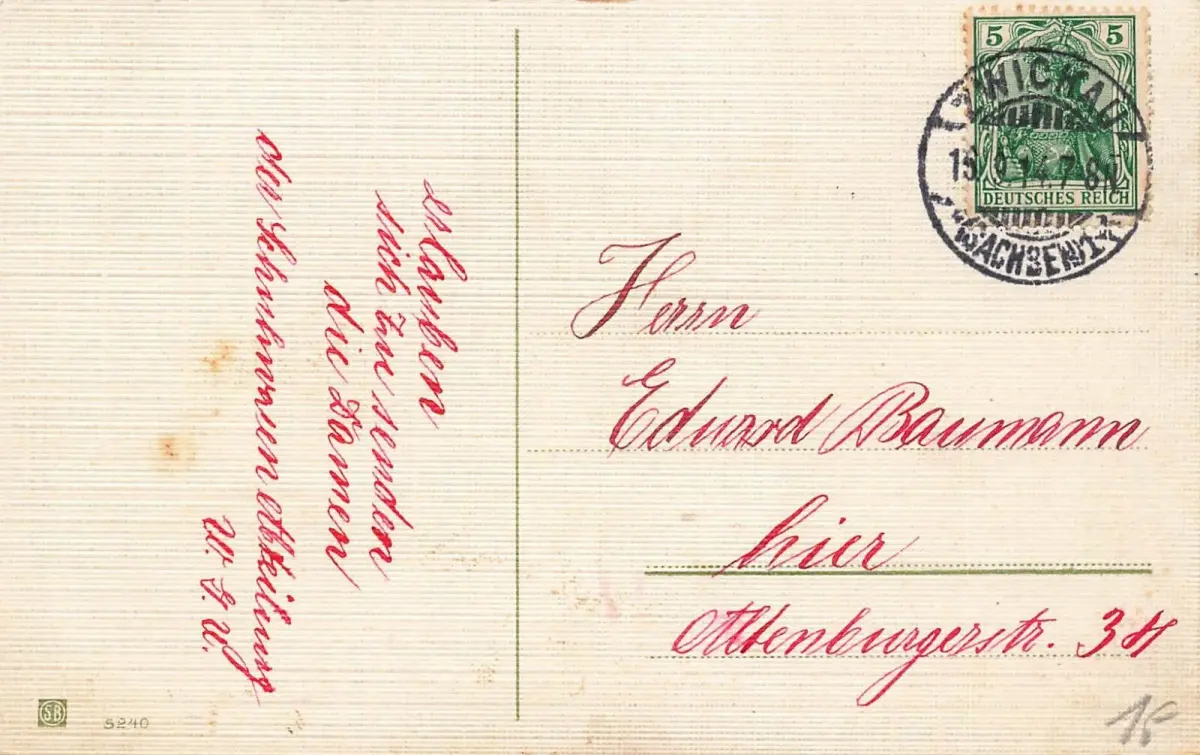 erlauben
sich zu senden
die Damen
der Schuhwaren Abteilung
W. F. W.
5 5
ZWICKAU
15.9.14.7-8N.
(SACHSEN)1
DEUTSCHES REICH
Herrn
Eduard Baumann
hier
Altenburgerstr. 34
SB
5240